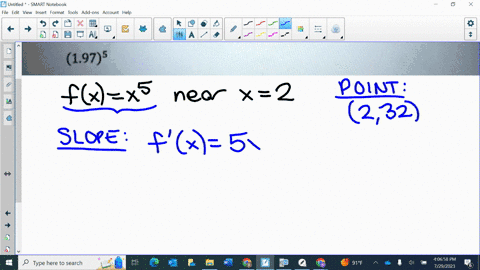 Untitled * - SMART Notebook
File Edit View Insert Format Tools Add-ons Account Help
(1.97)⁵
f(x)=x⁵ near x=2
POINT:
(2,32)
SLOPE: f'(x)=5
Type here to search
91°F
4:06:58 PM
7/29/2023